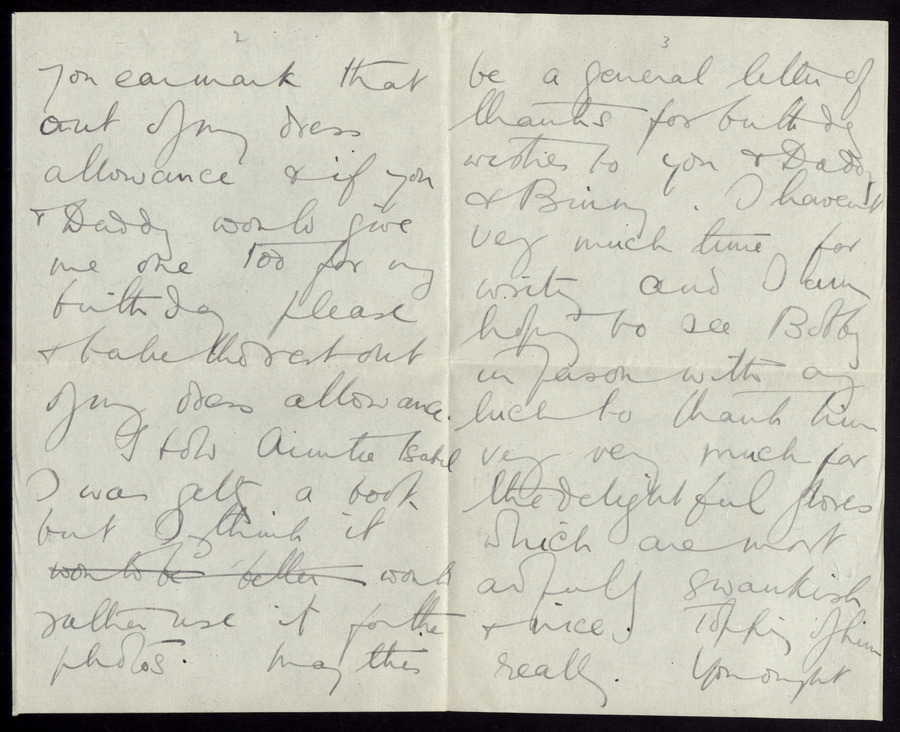 2
you earmark that
out of my dress
allowance & if you
& Daddy would give
me one too for my
birthday please
& take the rest out
of my dress allowance.
I told Auntie Isabel
I was getting a book
but I think it
would be better would
rather use it for the
photos. May this
3
be a general letter of
thanks for birthday
wishes to you & Daddy
& Binny. I haven't
very much time for
writing and I am
hoping to see Bobby
in person with any
luck to thank him
very very much for
the delightful gloves
which are most
awfully swankish
& nice. Topping of him
really. You ought